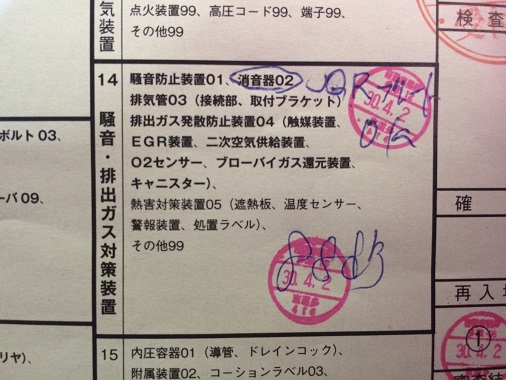 気装置
点火装置99、高圧コード99、端子99、
その他99
14 騒音・排出ガス対策装置
騒音防止装置01、消音器02
排気管03（接続部、取付ブラケット）
排出ガス発散防止装置04（触媒装置、
EGR装置、二次空気供給装置、
O2センサー、ブローバイガス還元装置、
キャニスター）、
熱害対策装置05（遮熱板、温度センサー、
警報装置、処置ラベル）、
その他99
30.4.2
30.4.2
15
内圧容器01（導管、ドレインコック）、
附属装置02、コーションラベル03、
ボルト03、
バ09、
リヤ）、
検査
確
再入場
①
30.4.2